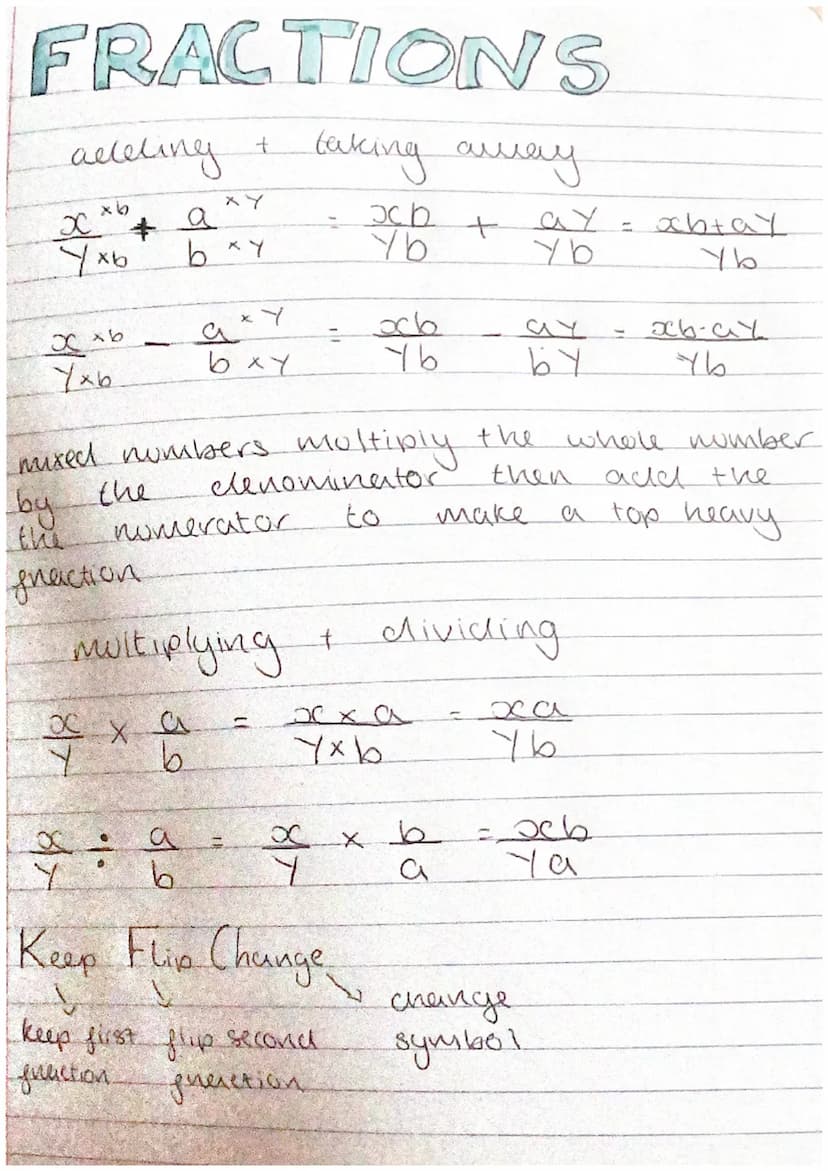 FRACTIONS
adding + taking away
x ×b / Y ×b + a ×Y / b ×Y = xb / Yb + aY / Yb = xb+aY / Yb
x ×b / Y×b - a ×Y / b ×Y = xb / Yb - aY / bY = xb-aY / Yb
mixed numbers multiply the whole number
by the denominator then add the
the numerator to make a top heavy
fraction
multiplying + dividing
x / Y × a / b = x × a / Y×b = xa / Yb
x / Y ÷ a / b = x / Y × b / a = xb / Ya
Keep Flip Change
keep first fraction
flip second fraction
change symbol